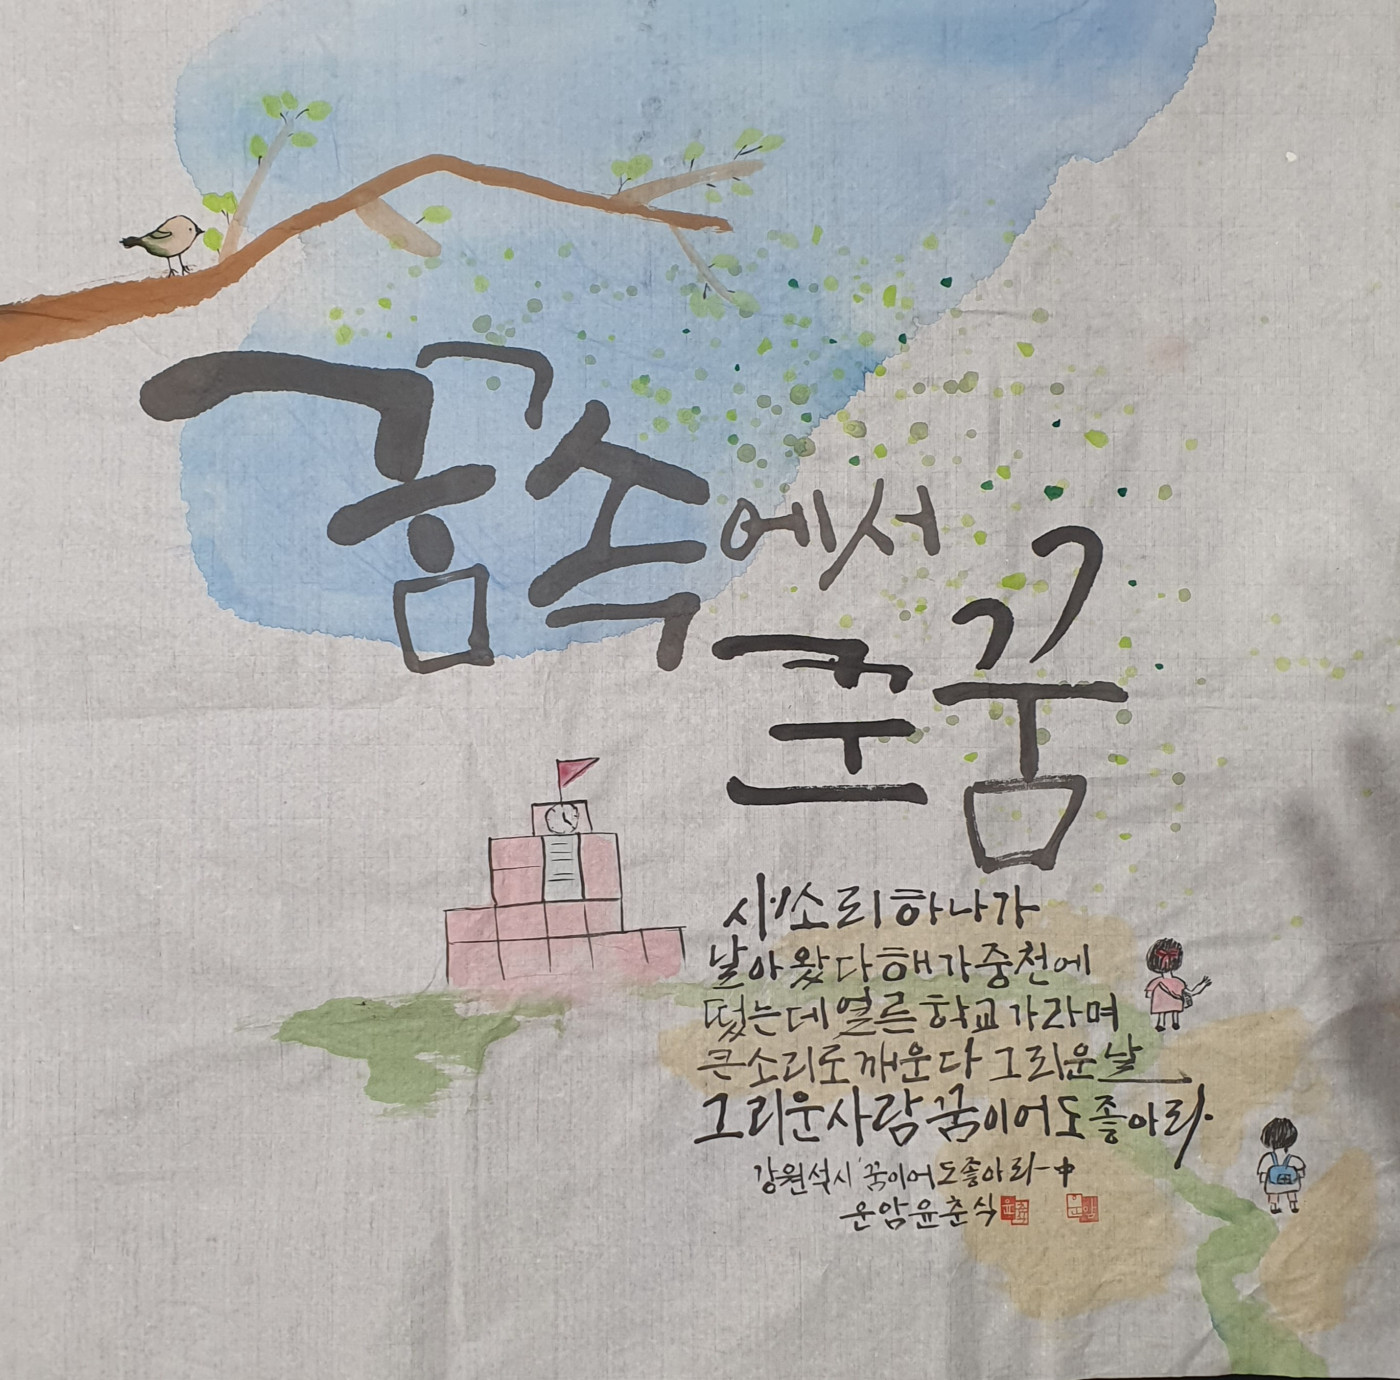 꿈속에서
꾼 꿈
새소리 하나가
날아왔다 해가 중천에
떴는데 얼른 학교 가라며
큰소리로 깨운다 그리운 날
그리운 사람 꿈이어도 좋아라.
강원석 시 '꿈이어도 좋아라' 中
운암 윤춘식